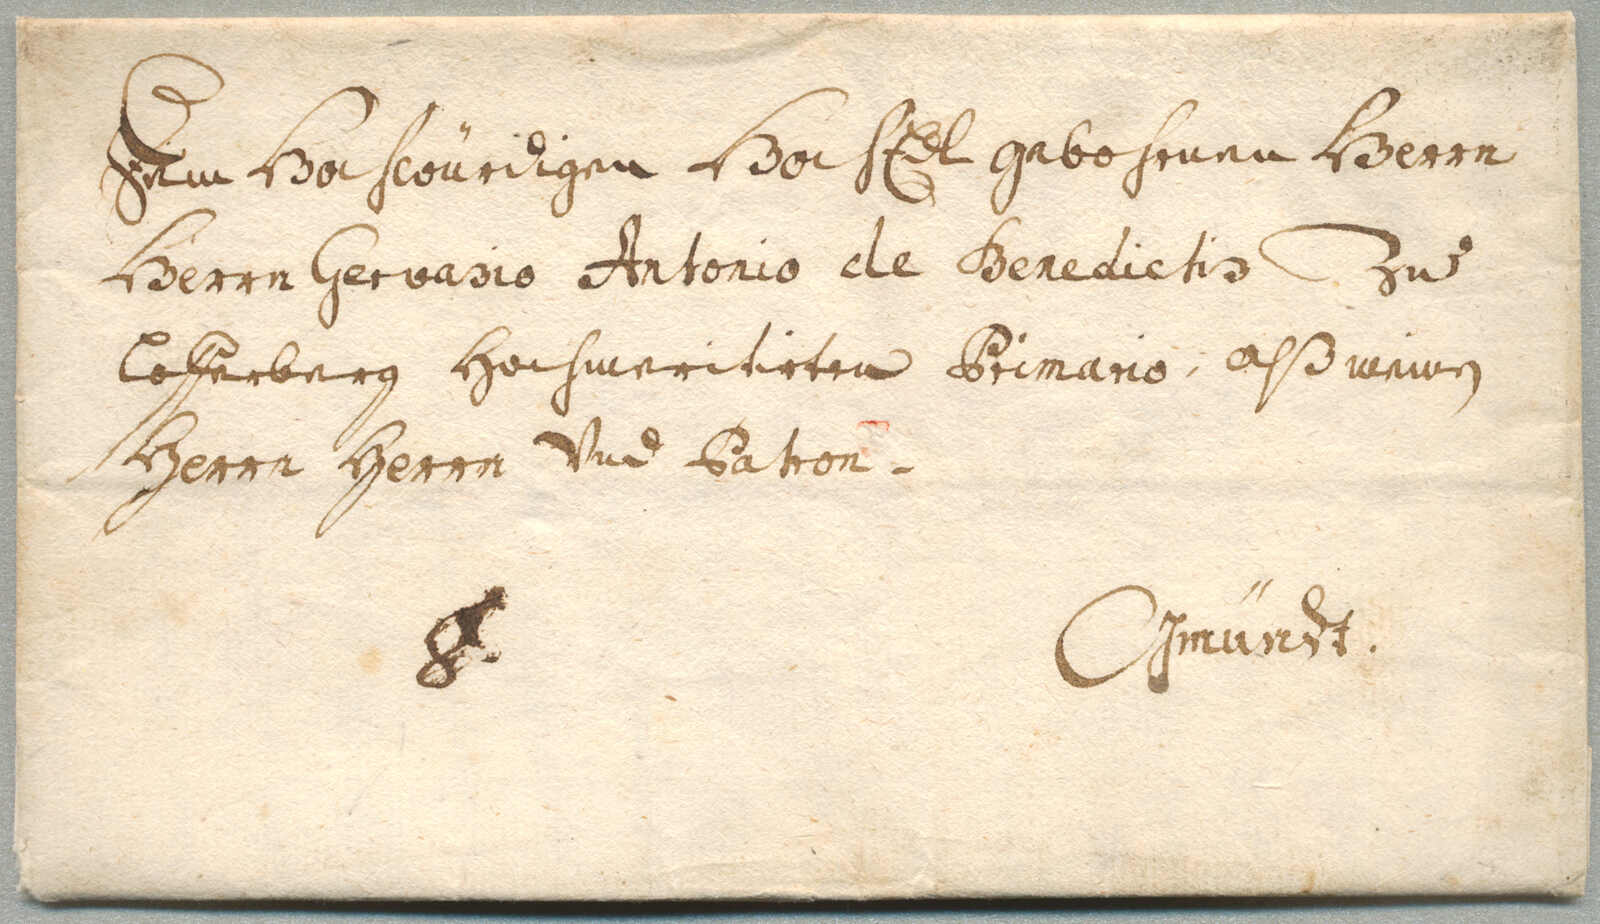 Dem Hochwürdigen HochEdl gebohrnen Herrn
Herrn Gervasio Antonio de Benedictis Zu
Cofferberg Hochmeritirten Primario, alß meinen
Herrn Herrn Vnd Patron.
Gmündt.